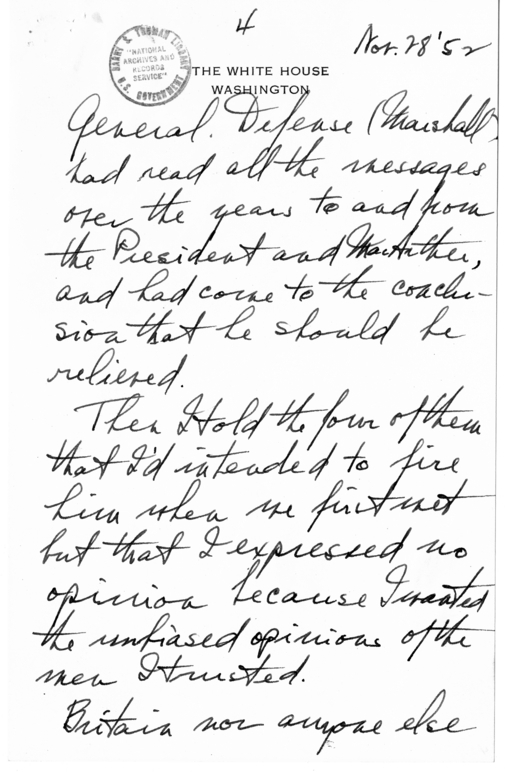 4
Nov. 28 '52
HARRY S. TRUMAN LIBRARY
"NATIONAL
ARCHIVES AND
RECORDS
SERVICE"
U.S. GOVERNMENT
THE WHITE HOUSE
WASHINGTON
General. Defense (Marshall)
had read all the messages
over the years to and from
the President and MacArthur,
and had come to the conclu-
sion that he should be
relieved.
Then I told the four of them
that I'd intended to fire
him when we first met
but that I expressed no
opinion because I wanted
the unbiased opinions of the
men I trusted.
Britain nor anyone else